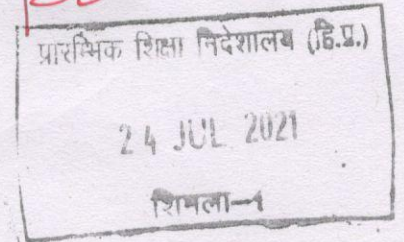 प्रारम्भिक शिक्षा निदेशालय (हि.प्र.)
24 JUL 2021
शिमला-1